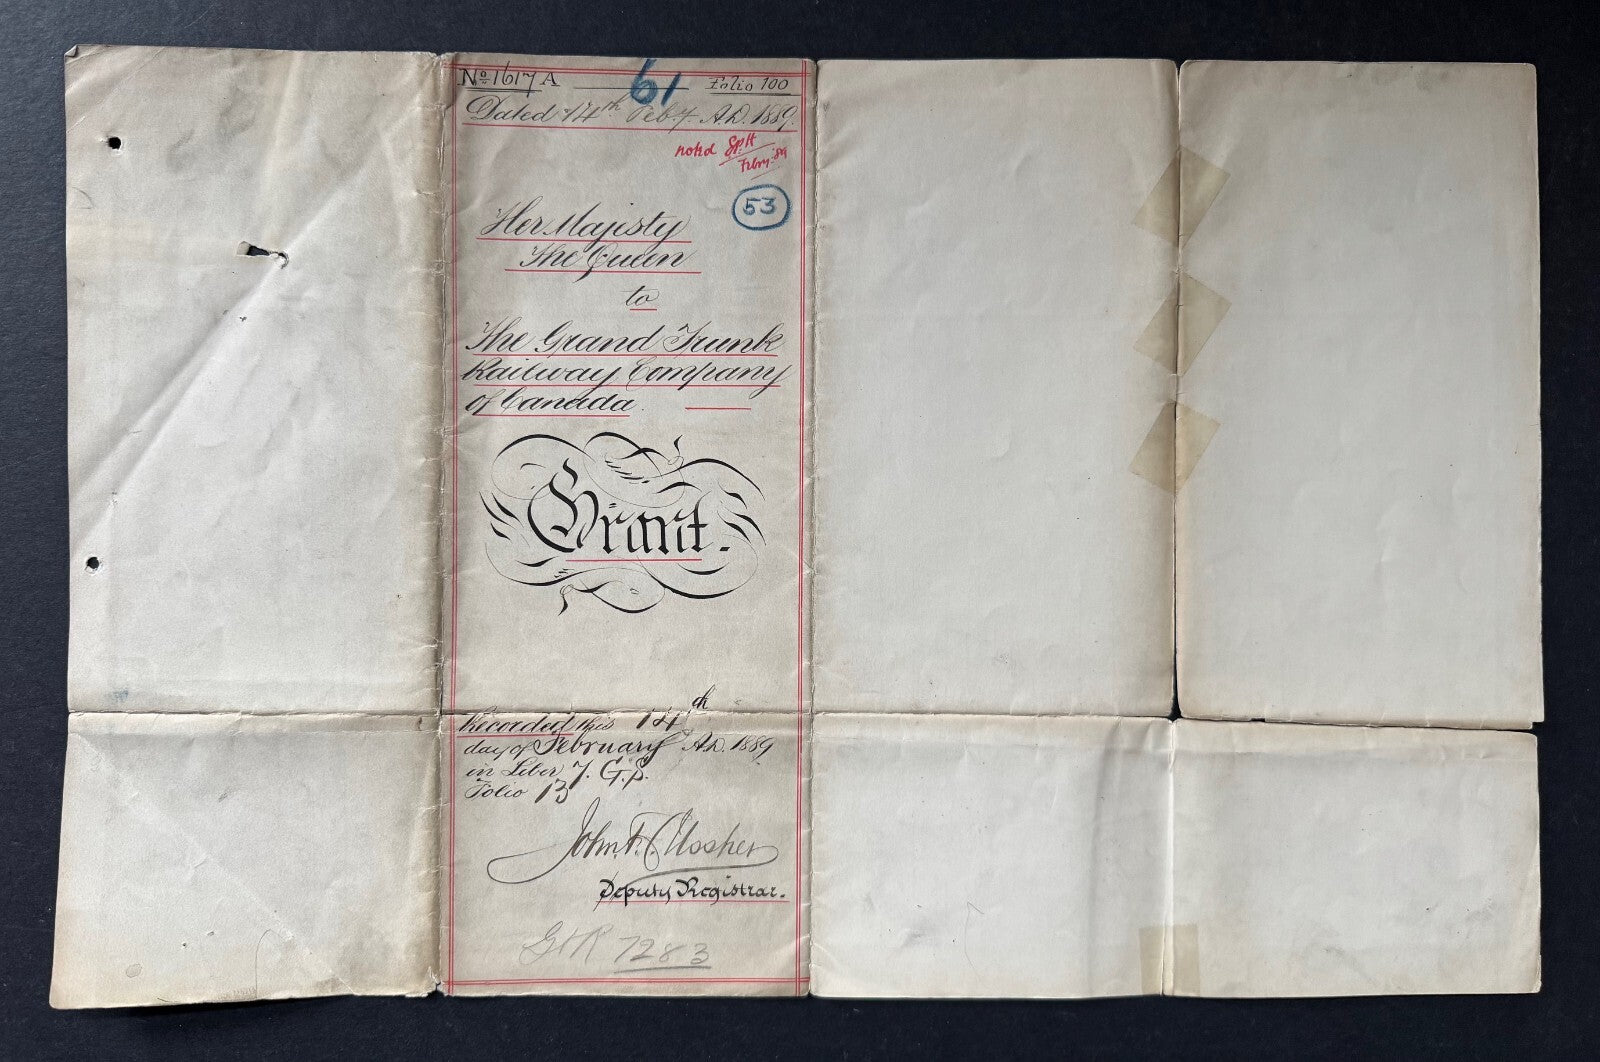 No 1617 A 61 Folio 100
Dated 14th Feby. A.D. 1889.
noted
53
Her Majesty
The Queen
to
The Grand Trunk
Railway Company
of Canada.
Grant.
Recorded this 14th
day of February A.D. 1889
in Liber 7. G.S.
Folio 13
John F. C. Ussher
Deputy Registrar.
GTR 7283